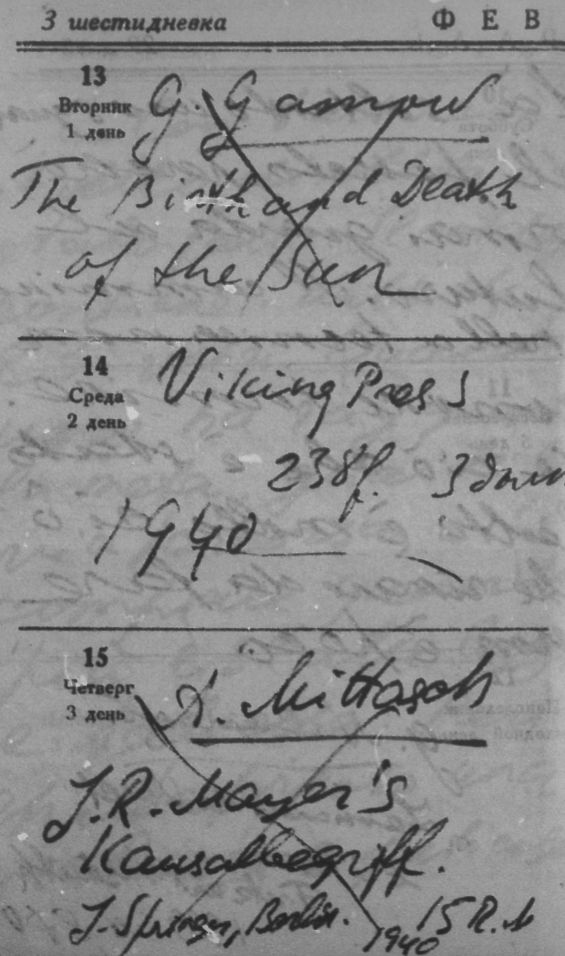 3 шестидневка
ФЕВ
13
Вторник
1 день
G. Gamow
The Birth and Death
of the Sun
14
Среда
2 день
Viking Press
238 p. 3 долл
1940
15
Четверг
3 день
A. Mittasch
J. R. Mayer's
Kausalbegriff.
J. Springer, Berlin.
1940
15 R.M